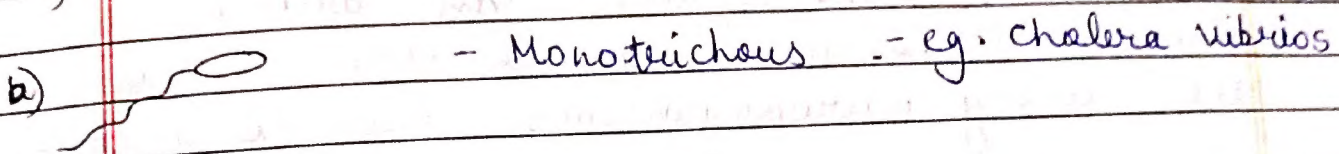 a) - Monotrichous - eg. cholera vibrios